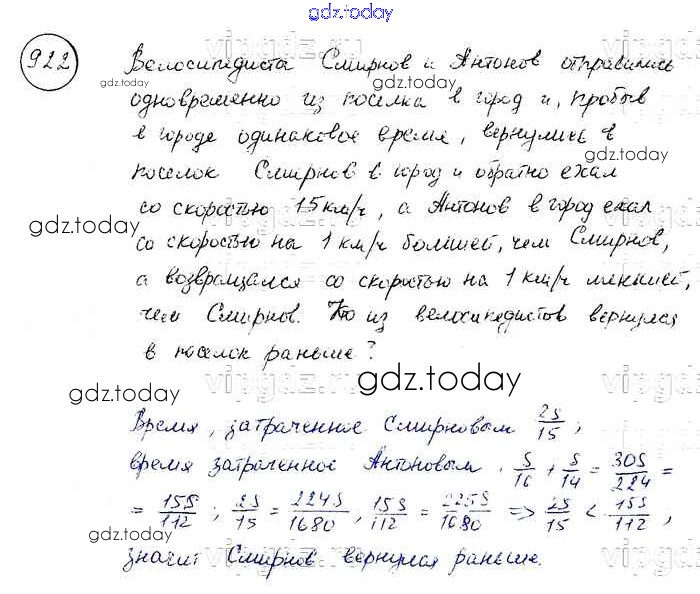 gdz.today
922
Велосипедисты Смирнов и Антонов отправились
gdz.today
одновременно из поселка в город и, пробыв
в городе одинаковое время, вернулись в
gdz.today
поселок Смирнов в город и обратно ехал
gdz.today
со скоростью 15 км/ч, а Антонов в город ехал
со скоростью на 1 км/ч большей, чем Смирнов,
а возвращался со скоростью на 1 км/ч меньшей,
чем Смирнов. Кто из велосипедистов вернулся
в поселок раньше?
gdz.today
gdz.today
Время, затраченное Смирновым 2S/15;
время затраченное Антоновым. S/16 + S/14 = 30S/224 =
= 15S/112; 2S/15 = 224S/1680, 15S/112 = 225S/1680 => 2S/15 < 15S/112,
gdz.today
gdz.today
значит Смирнов вернулся раньше.